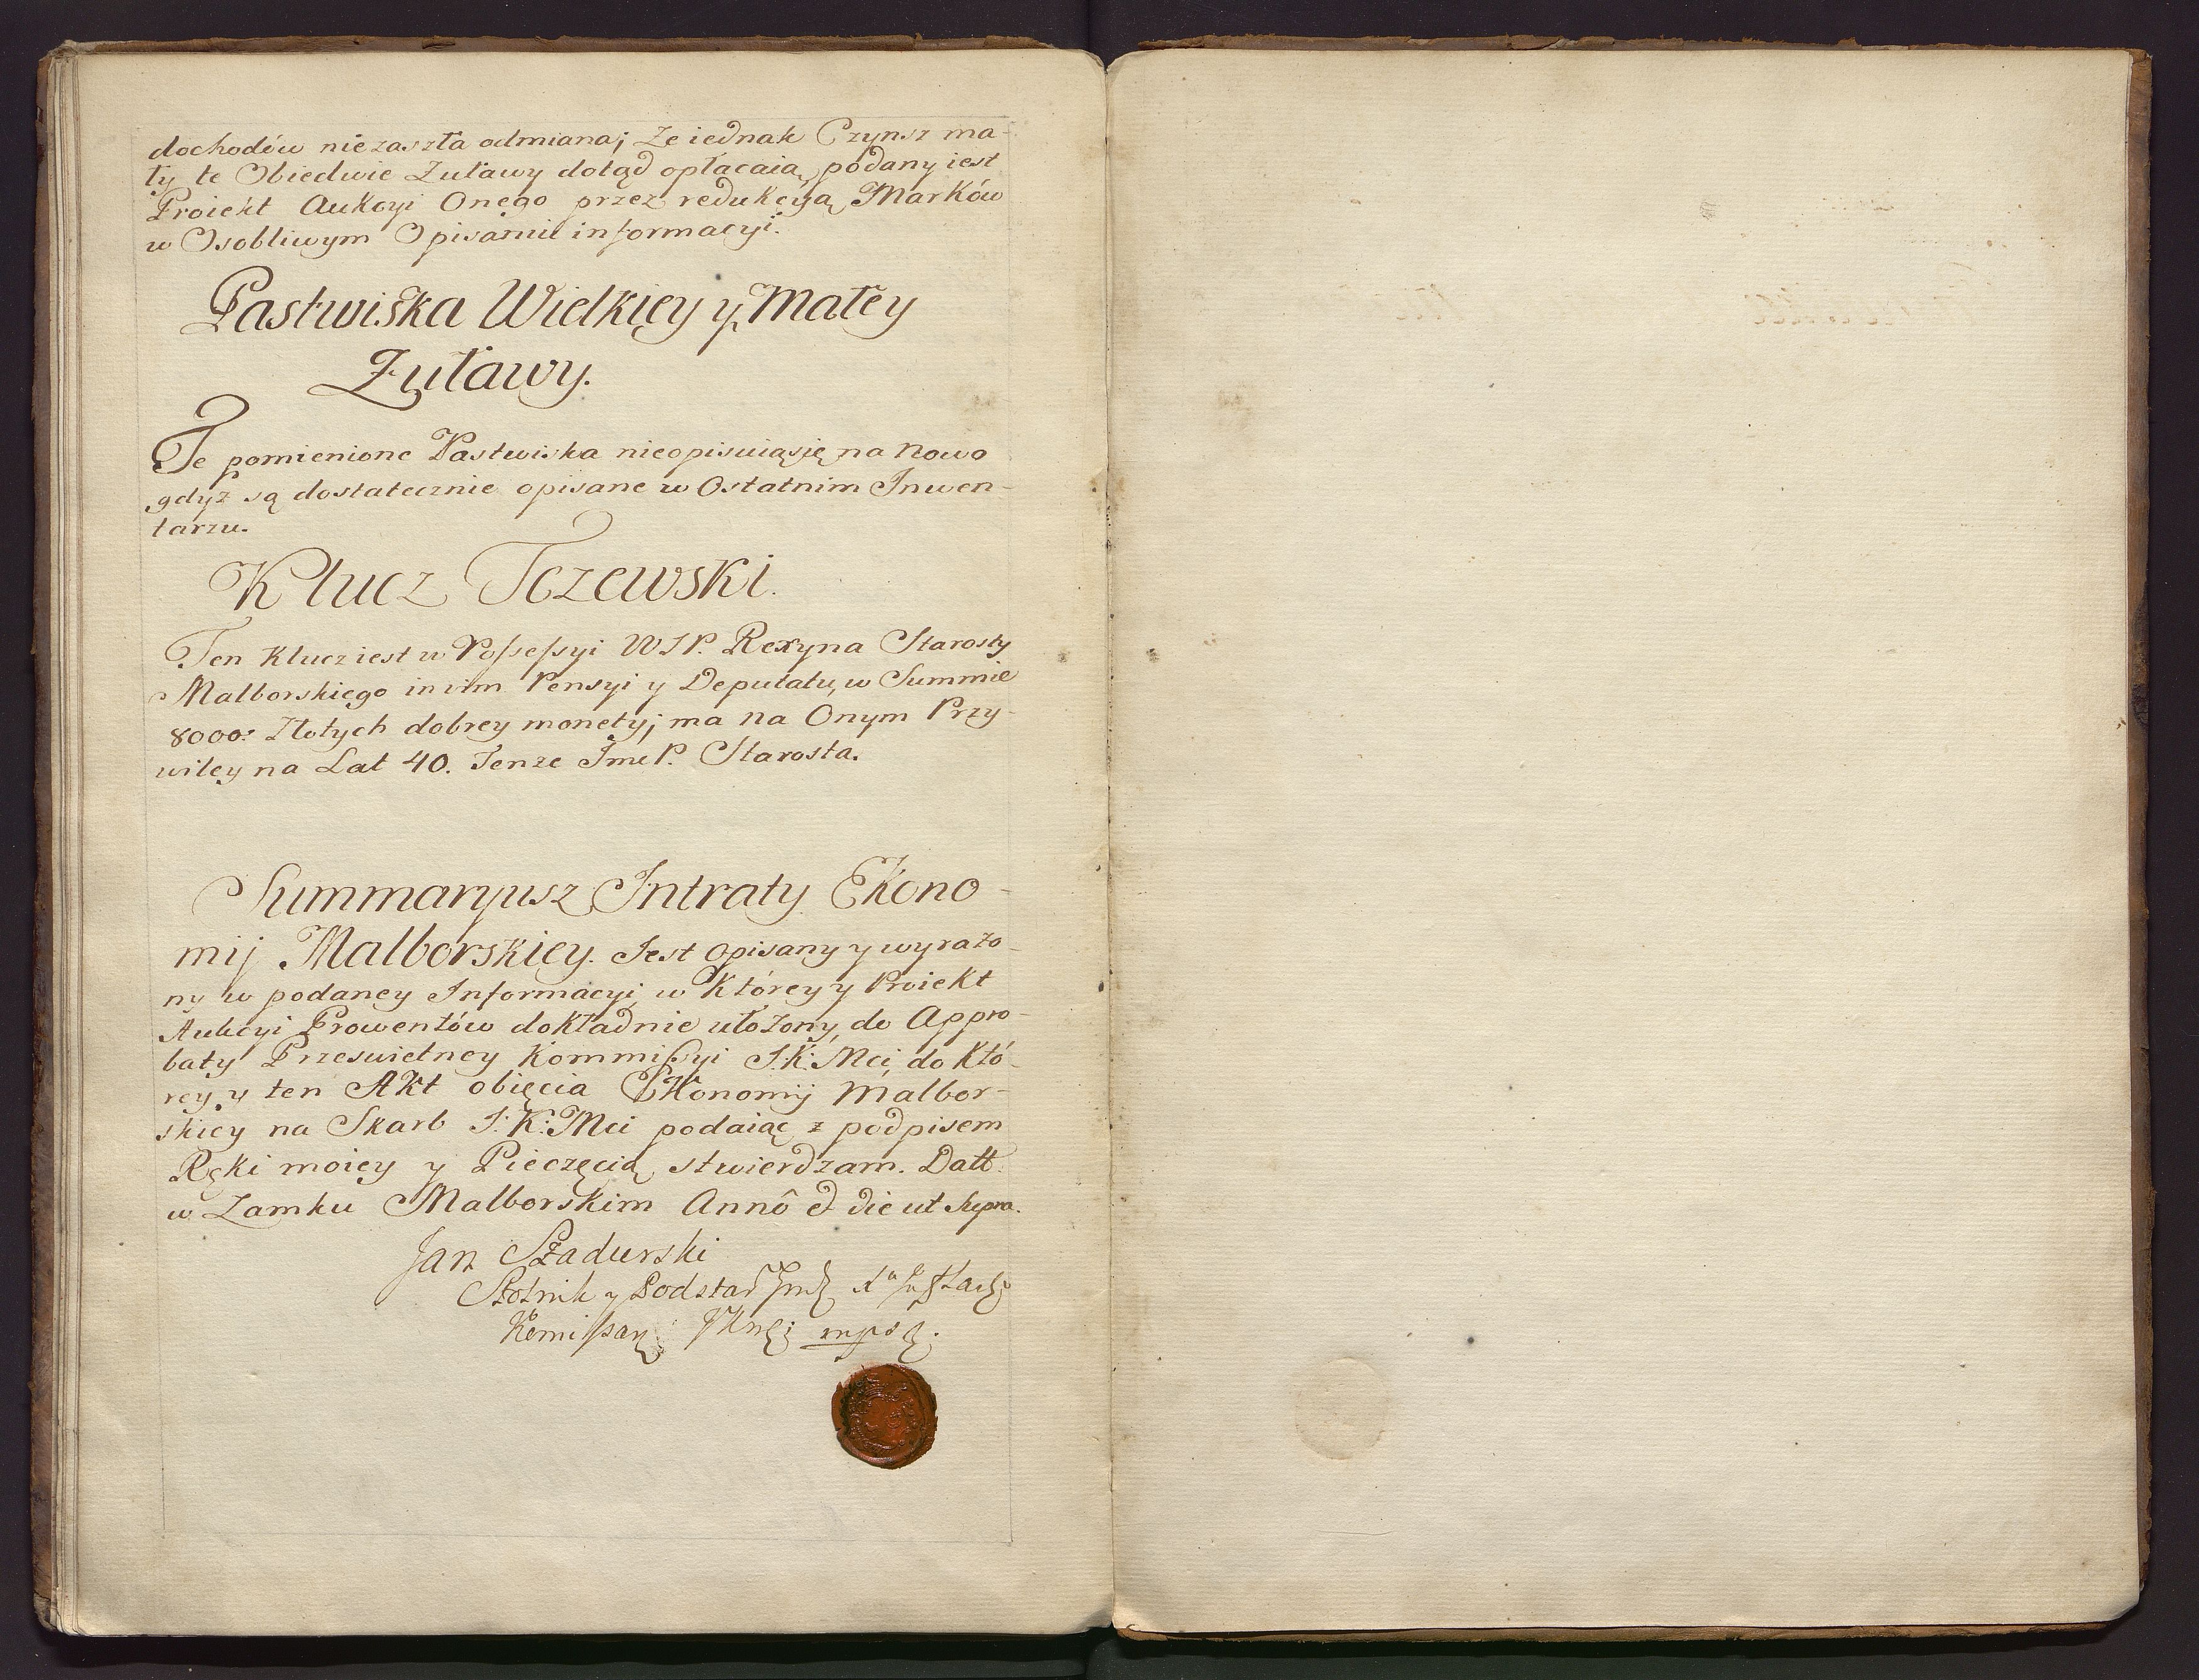 dochodów niezaszła odmiana; Ze iednak Czynsz ma-
ły te Obiedwie Zuławy dotąd opłacaią, podany iest
Proiekt Aukcyi Onego przez redukcyą Marków
w Osobliwym Opisaniu informacyi.
Pastwiska Wielkiey y Małey
Żuławy.
Te pomienione Pastwiska nieopisuiąsię na nowo
gdyż są dostatecznie opisane w Ostatnim Inwen-
tarzu.
Klucz Tczewski.
Ten Klucz iest w Possessyi WJP. Rexyna Starosty
Malborskiego in vim Pensyi y Deputatu, w Summie
8000: Złotych dobrey monety; ma na Onym Przy-
wiley na Lat 40. Tenze Jme P. Starosta.
Summaryusz Intraty Ekono-
mij Malborskiey. Jest opisany y wyrażo-
ny w podaney Informacyi, w Którey y Proiekt
Aukcyi Prowentów dokładnie ułożony, do Appro-
baty Przeswietney Kommissyi J:K:Mci, do Któ-
rey, y ten Akt obięcia Ekonomij Malbor-
skiey na Skarb J:K:Mci podaiąc z podpisem
Ręki moiey y Pieczęcią stwierdzam. Datt:
w Zamku Malborskim Annô & die ut supra.
Jan Szadurski
Stolnik y Podstar
Komissarz mpso.